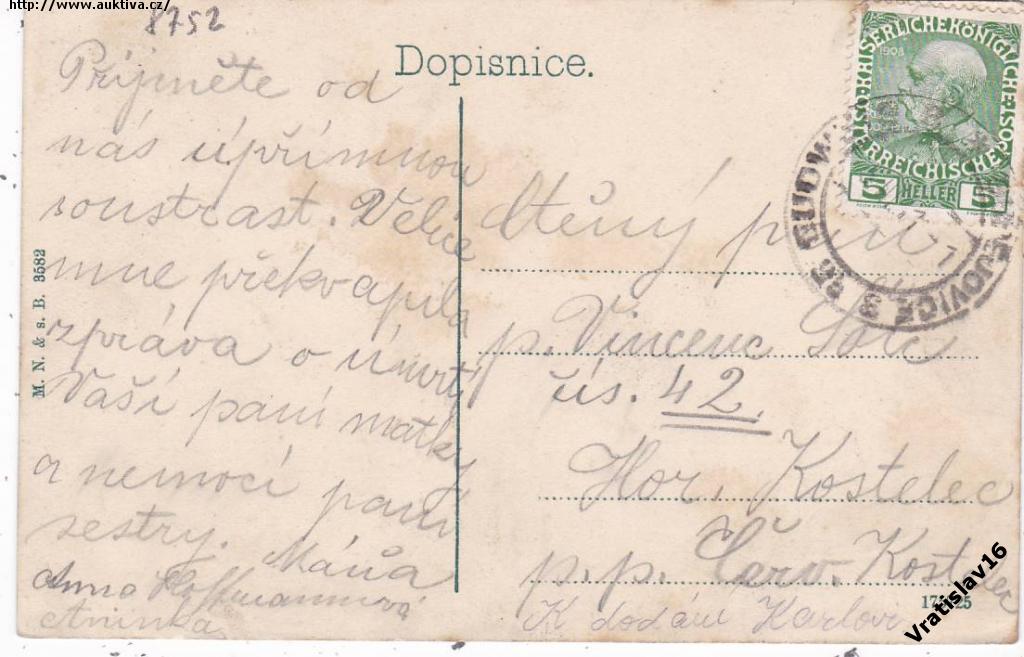 http://www.auktiva.cz/
8752
Dopisnice.
Přijměte od
nás upřímnou
soustrast. Velice
mne překvapila
zpráva o úmrtí
Vaší paní matky
a nemoci paní
sestry. Máňa
Anna Hoffmannová
Aninka
M. N. & s. B. 3582
KAISERLICHE KÖNIGLICHE
ÖSTERREICHISCHE POST
1908
5 HELLER 5
BUDWEIS 3
BUDĚJOVICE
Ctěný pan
p. Vincenc
čís. 42.
Hor. Kostelec
p. p. Červ. Kostelec
K dodání Karlovi
Vratislav16